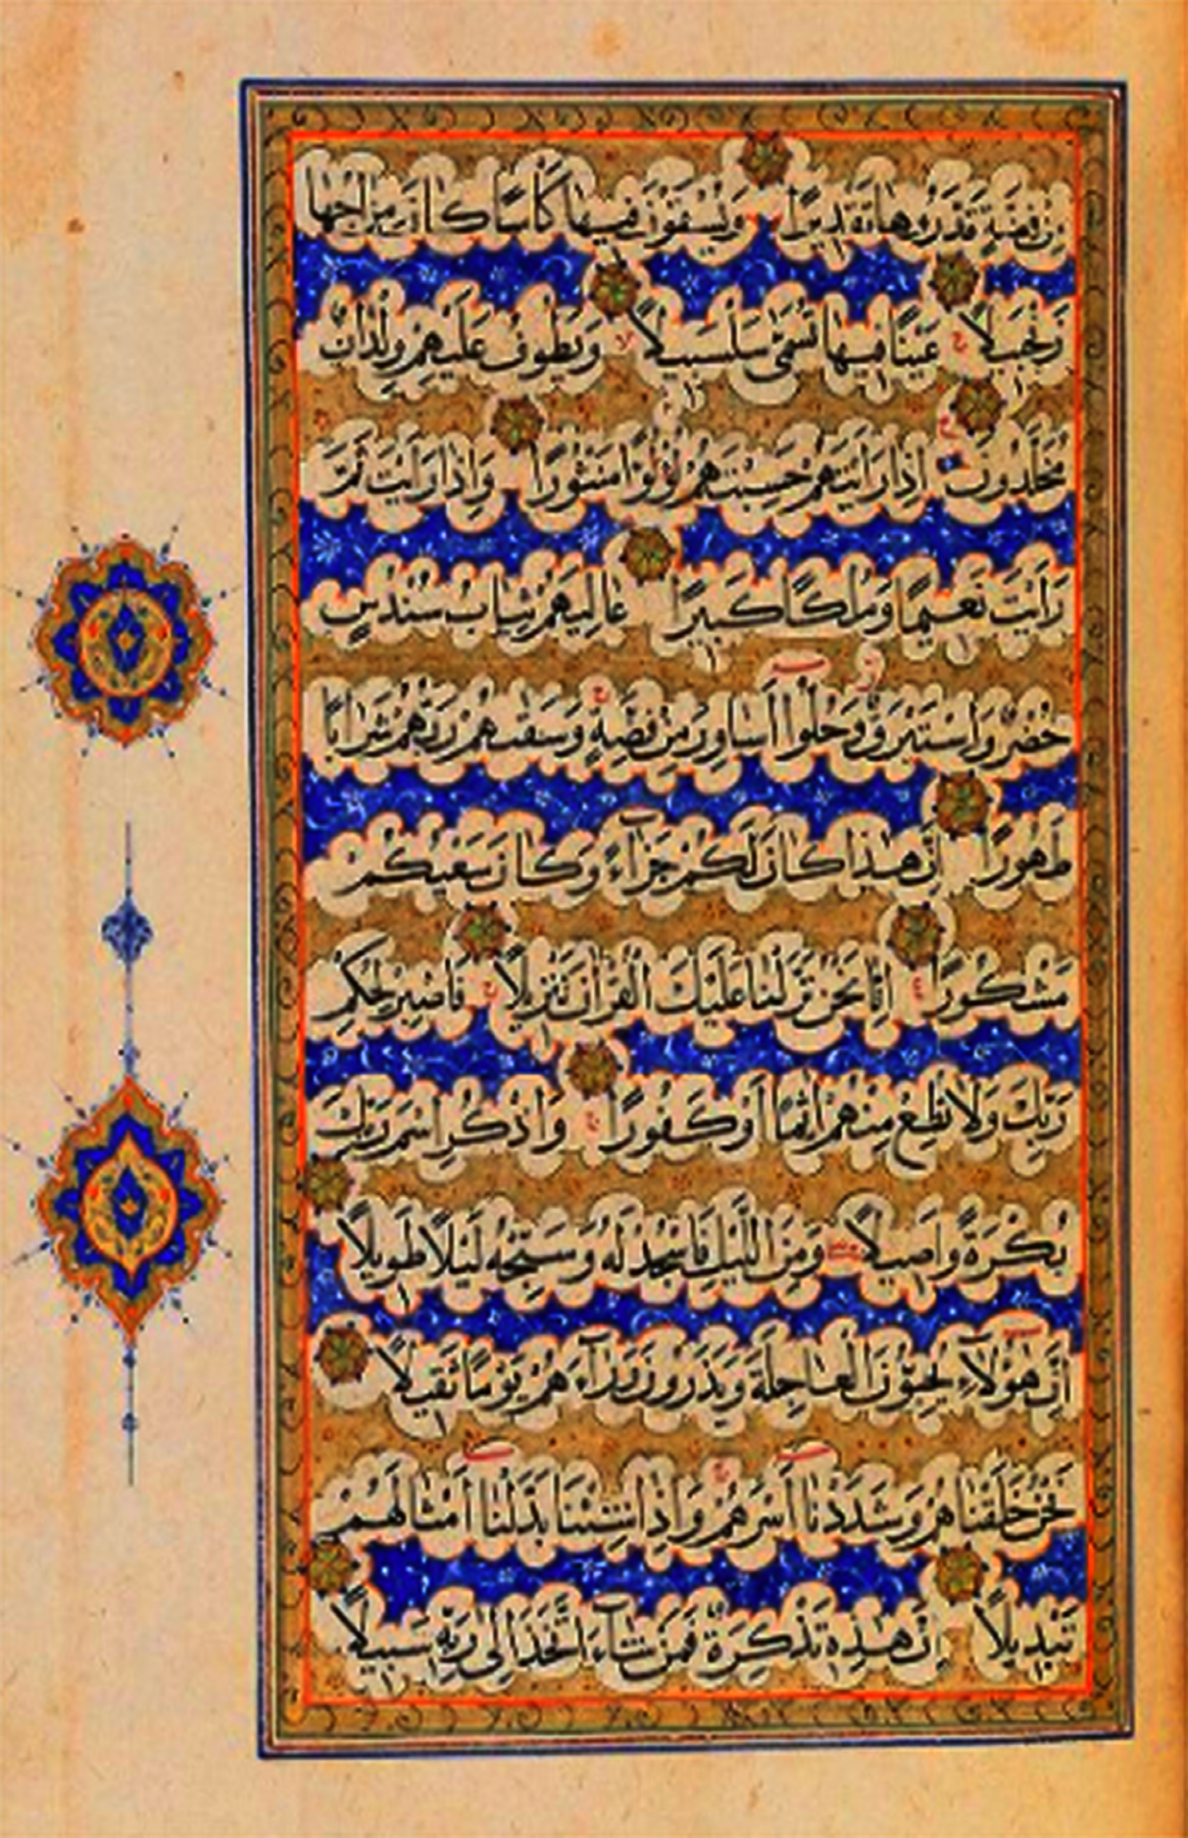 مِنْ فِضَّةٍ قَدَّرُوهَا تَقْدِيرًا وَيُسْقَوْنَ فِيهَا كَأْسًا كَانَ مِزَاجُهَا
زَنْجَبِيلًا ج عَيْنًا فِيهَا تُسَمَّى سَلْسَبِيلًا لا وَيَطُوفُ عَلَيْهِمْ وِلْدَانٌ
مُخَلَّدُونَ اِذَا رَاَيْتَهُمْ حَسِبْتَهُمْ لُؤْلُؤًا مَنْثُورًا وَاِذَا رَاَيْتَ ثَمَّ
رَاَيْتَ نَعِيمًا وَمُلْكًا كَبِيرًا عَالِيَهُمْ ثِيَابُ سُنْدُسٍ
خُضْرٌ وَاِسْتَبْرَقٌ وَحُلُّوا اَسَاوِرَ مِنْ فِضَّةٍ ج وَسَقٰىهُمْ رَبُّهُمْ شَرَابًا
طَهُورًا اِنَّ هٰذَا كَانَ لَكُمْ جَزَاءً وَكَانَ سَعْيُكُمْ
مَشْكُورًا ع اِنَّا نَحْنُ نَزَّلْنَا عَلَيْكَ الْقُرْاٰنَ تَنْزِيلًا ج فَاصْبِرْ لِحُكْمِ
رَبِّكَ وَلَا تُطِعْ مِنْهُمْ اٰثِمًا اَوْ كَفُورًا ج وَاذْكُرِ اسْمَ رَبِّكَ
بُكْرَةً وَاَصِيلًا وَمِنَ اللَّيْلِ فَاسْجُدْ لَهُ وَسَبِّحْهُ لَيْلًا طَوِيلًا
اِنَّ هٰؤُلَاءِ يُحِبُّونَ الْعَاجِلَةَ وَيَذَرُونَ وَرَاءَهُمْ يَوْمًا ثَقِيلًا
نَحْنُ خَلَقْنَاهُمْ وَشَدَدْنَا اَسْرَهُمْ ج وَاِذَا شِئْنَا بَدَّلْنَا اَمْثَالَهُمْ
تَبْدِيلًا اِنَّ هٰذِهِ تَذْكِرَةٌ فَمَنْ شَاءَ اتَّخَذَ اِلٰى رَبِّهِ سَبِيلًا